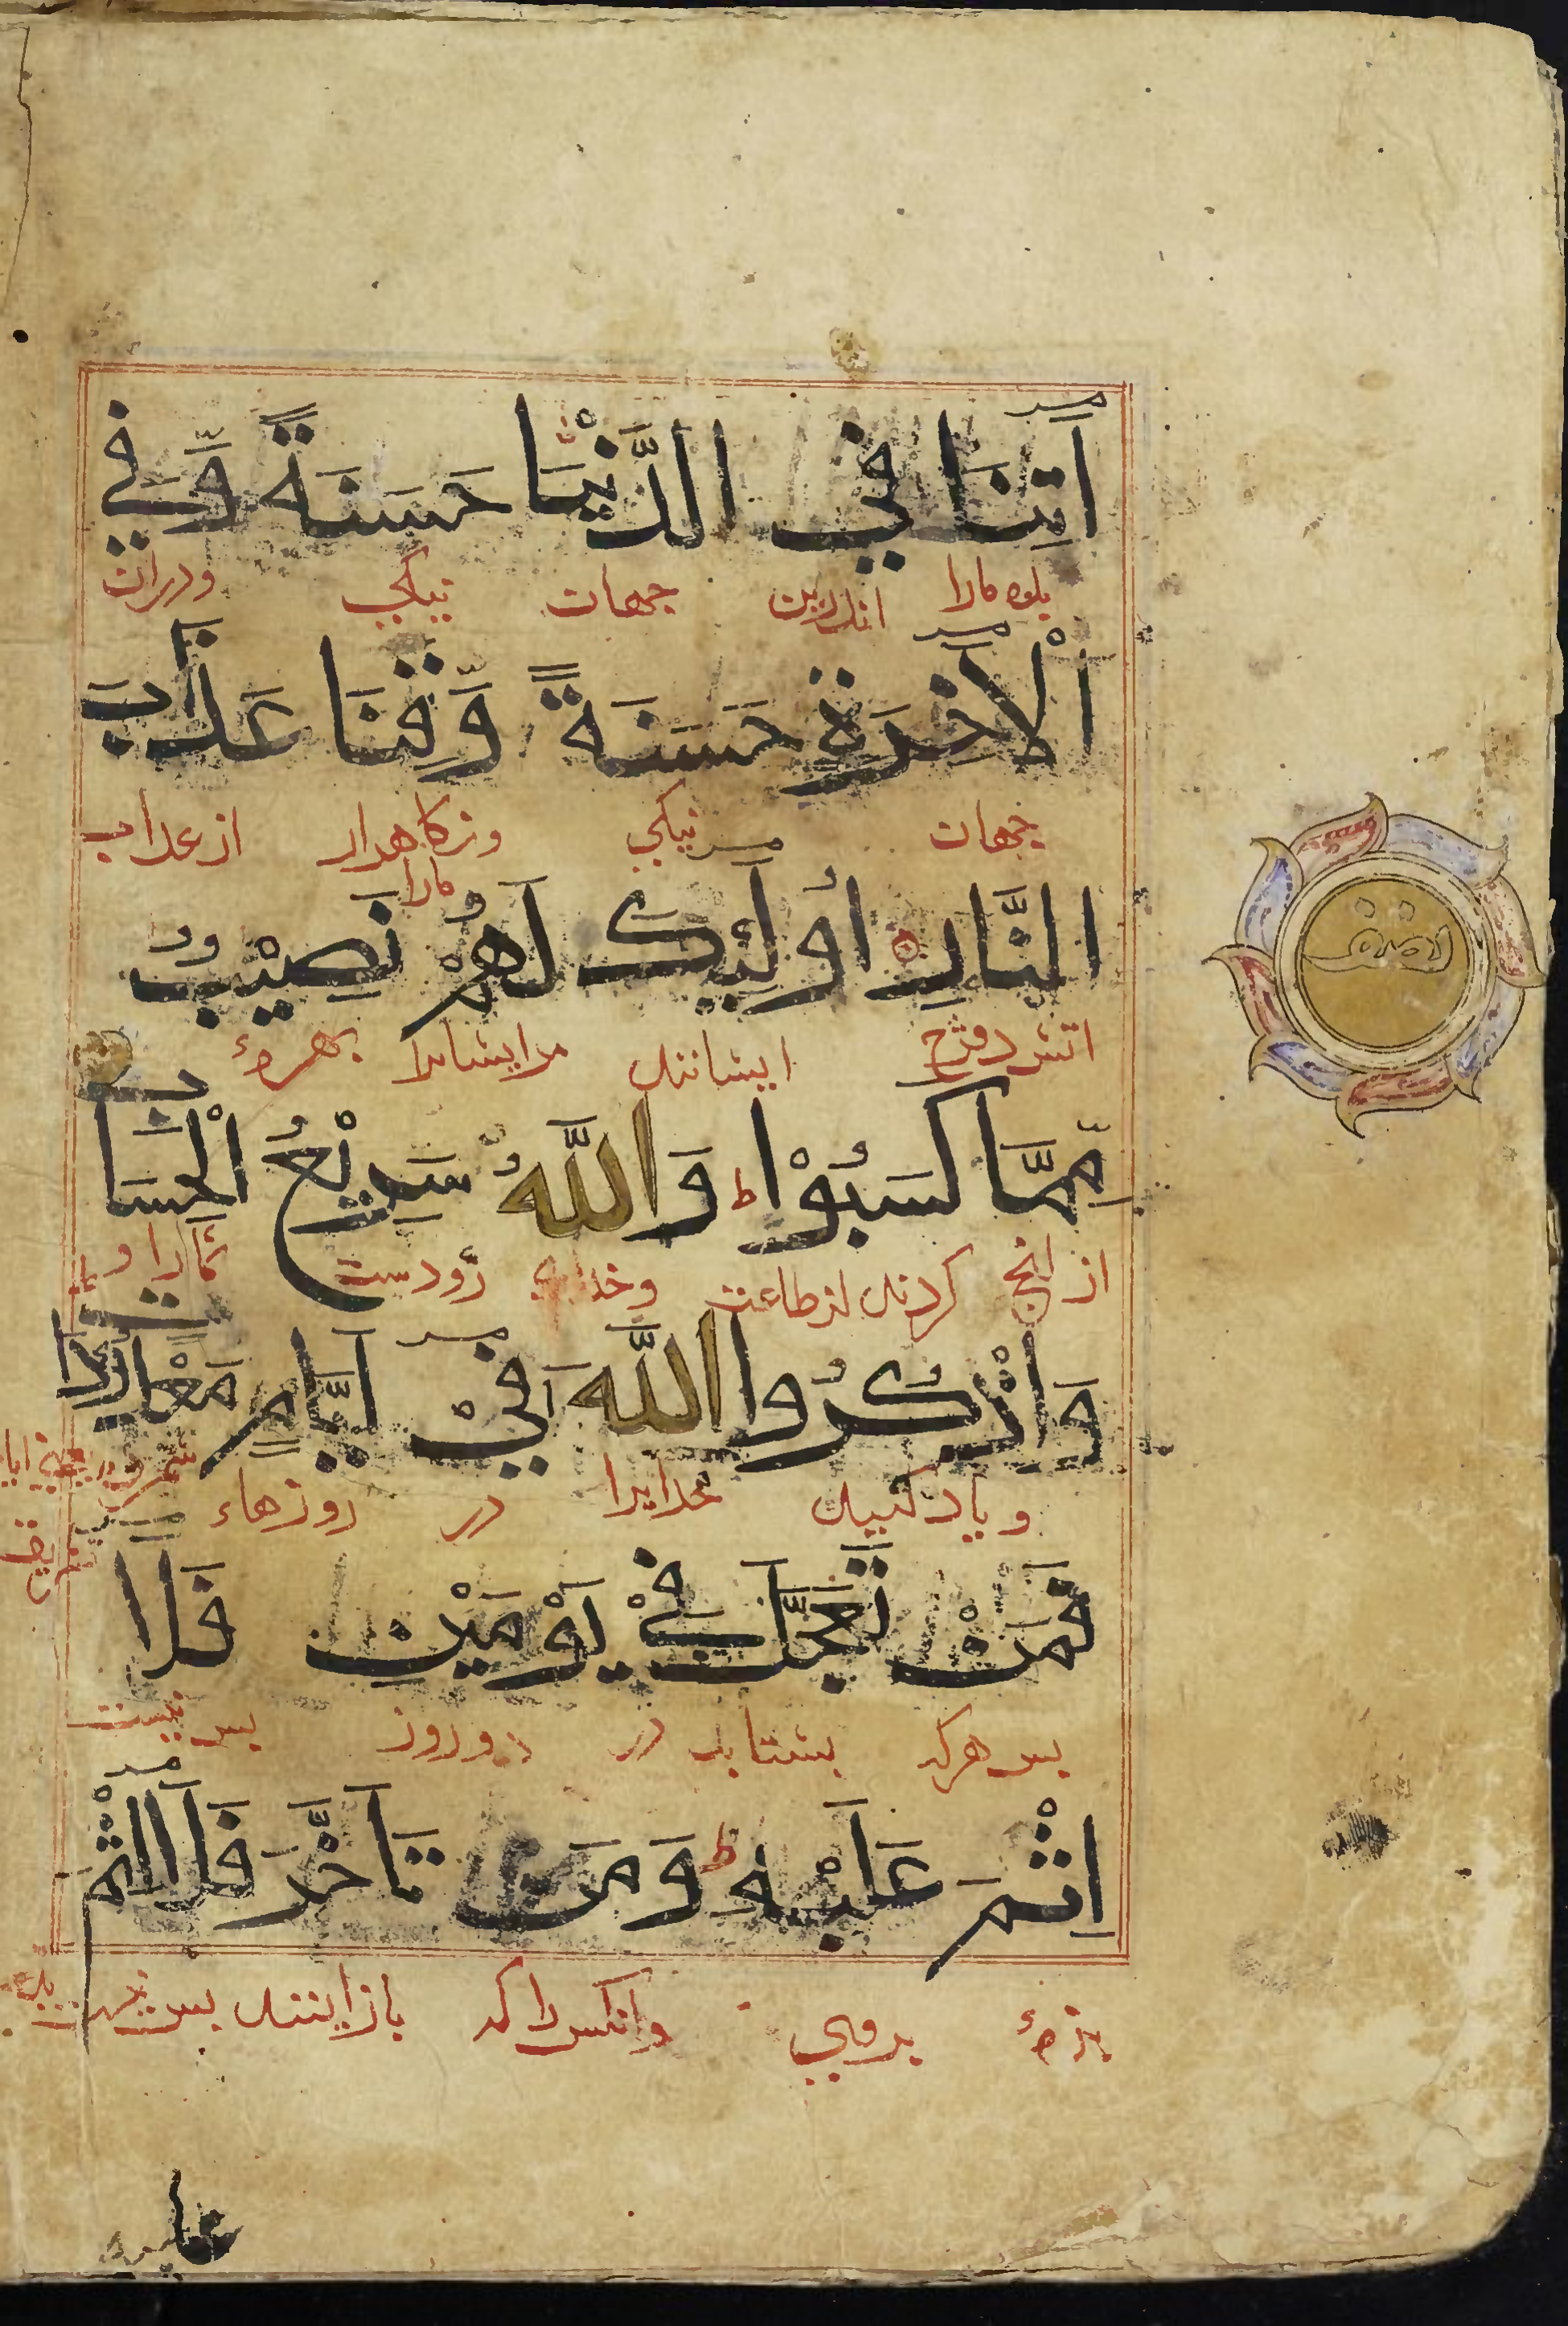 اٰتِنَا فِي الدُّنْيَا حَسَنَةً وَّفِي
بده مارا اندرین جهان نیکی ودران
الْاٰخِرَةِ حَسَنَةً وَّقِنَا عَذَابَ
جهان نیکی ونگاهدار مارا از عذاب
النَّارِ اُولٰٓئِكَ لَهُمْ نَصِيْبٌ
اتش دوزخ ایشانند مرایشانرا بهرهٔ
مِّمَّا كَسَبُوْا ط وَاللّٰهُ سَرِيْعُ الْحِسَابِ
از انچ کردند از طاعت وخدای زودست
وَاذْكُرُوا اللّٰهَ فِيْٓ اَيَّامٍ مَّعْدُوْدَاتٍ
ویاد کنید خدایرا در روزهاء
فَمَنْ تَعَجَّلَ فِيْ يَوْمَيْنِ فَلَآ
پس هرکه بشتابد در دو روز پس نیست
اِثْمَ عَلَيْهِ ط وَمَنْ تَاَخَّرَ فَلَآ اِثْمَ
بزهٔ بروی وانکس را که باز ایستد پس نیست
عليه